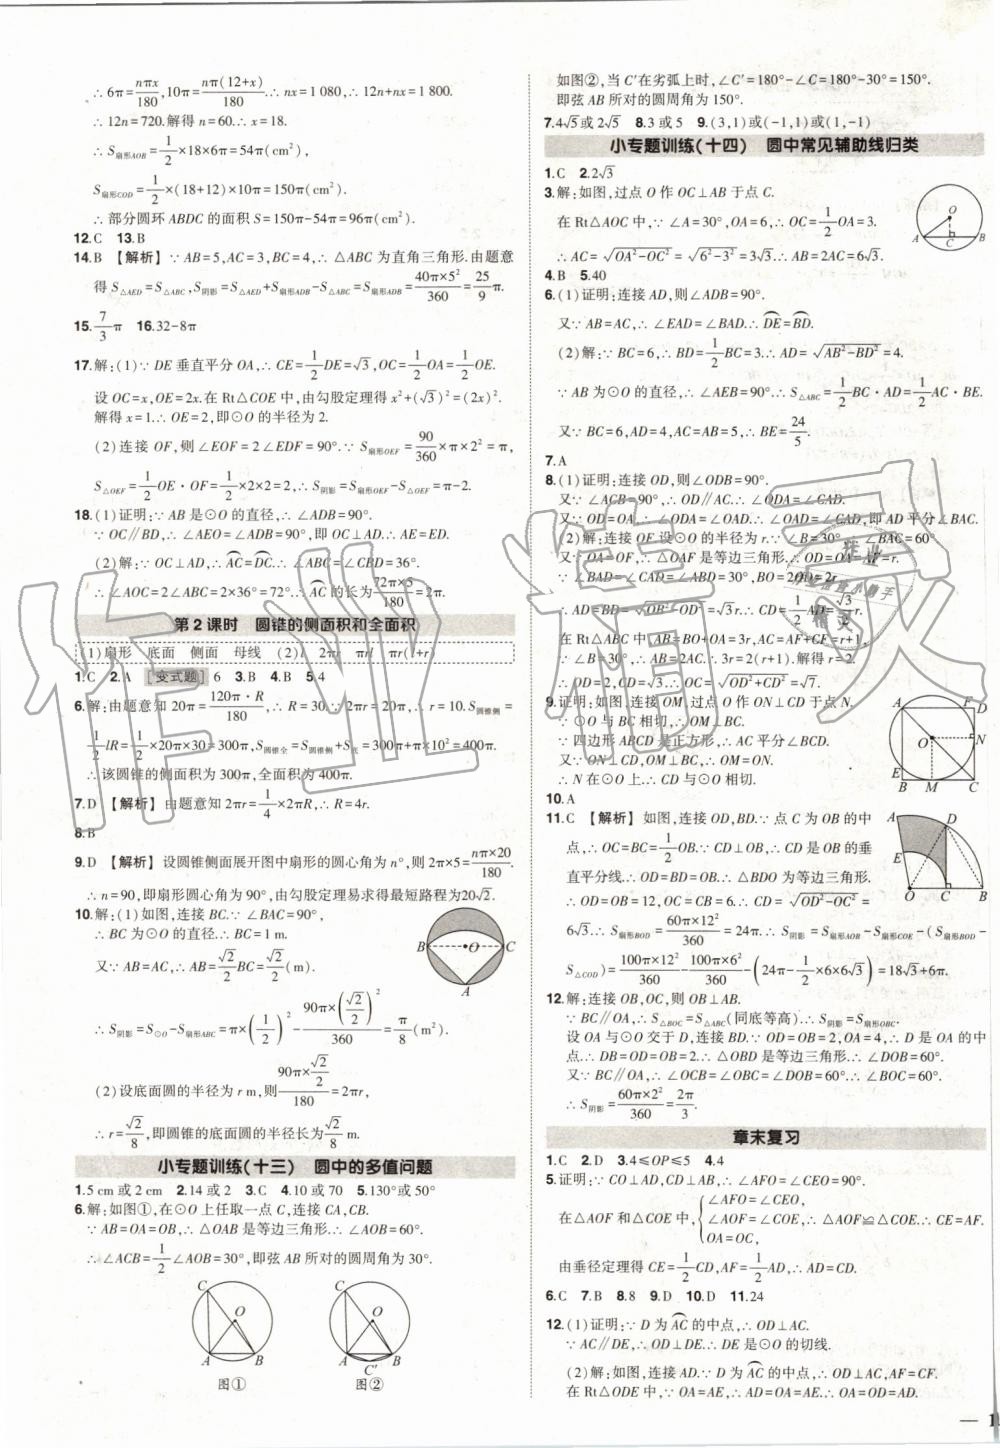 ∴ 6π=nπx/180,10π=nπ(12+x)/180.∴ nx=1 080,12n+nx=1 800.
∴ 12n=720.解得 n=60.∴ x=18.
∴ S扇形AOB=1/2×18×6π=54π(cm²),
S扇形COD=1/2×(18+12)×10π=150π(cm²).
∴ 部分圆环 ABDC 的面积 S=150π-54π=96π(cm²).
12.C 13.B
14.B 【解析】∵ AB=5,AC=3,BC=4,∴ △ABC 为直角三角形.由题意
得 S△AED=S△ABC,S阴影=S△AED+S扇形ADB-S△ABC=S扇形ADB=40π×5²/360=25/9π.
15.7/3π 16.32-8π
17.解:(1)∵ DE 垂直平分 OA,∴ CE=1/2DE=√3,OC=1/2OA=1/2OE.
设 OC=x,OE=2x.在 Rt△COE 中,由勾股定理得 x²+(√3)²=(2x)².
解得 x=1.∴ OE=2,即⊙O 的半径为 2.
(2)连接 OF,则∠EOF=2∠EDF=90°.∵ S扇形OEF=90/360×π×2²=π,
S△OEF=1/2OE·OF=1/2×2×2=2,∴ S阴影=S扇形OEF-S△OEF=π-2.
18.(1)证明:∵ AB 是⊙O 的直径,∴ ∠ADB=90°.
∵ OC∥BD,∴ ∠AEO=∠ADB=90°,即 OC⊥AD.∴ AE=ED.
(2)解:∵ OC⊥AD,∴ AC⌒=DC⌒.∴ ∠ABC=∠CBD=36°.
∴ ∠AOC=2∠ABC=2×36°=72°.∴ AC⌒的长为72π×5/180=2π.
第2课时 圆锥的侧面积和全面积
(1)扇形 底面 侧面 母线 (2)l 2πr πrl πr(l+r)
1.C 2.A [变式题] 6 3.B 4.B 5.4
6.解:由题意知 20π=120π·R/180,∴ R=30.∵ 20π=2πr,∴ r=10.S圆锥侧=
1/2lR=1/2×20π×30=300π,S圆锥全=S圆锥侧+S底=300π+π×10²=400π.
∴ 该圆锥的侧面积为 300π,全面积为 400π.
7.D 【解析】由题意知 2πr=1/4×2πR,∴ R=4r.
8.B
9.D 【解析】设圆锥侧面展开图中扇形的圆心角为 n°,则 2π×5=nπ×20/180.
∴ n=90,即扇形圆心角为 90°,由勾股定理易求得最短路程为20√2.
10.解:(1)如图,连接 BC.∵ ∠BAC=90°,
∴ BC 为⊙O 的直径.∴ BC=1 m.
又∵ AB=AC,∴ AB=AC=√2/2(m).
∴ S阴影=S⊙O-S扇形ABC=π×(1/2)²-90π×(√2/2)²/360=π/8(m²).
(2)设底面圆的半径为 r m,则90π×√2/2/180=2πr,
∴ r=√2/8,即圆锥的底面圆的半径长为√2/8 m.
B O C A
小专题训练(十三) 圆中的多值问题
1.5 cm 或 2 cm 2.14 或 2 3.C 4.10 或 70 5.130°或 50°
6.解:如图①,在⊙O 上任取一点 C,连接 CA,CB.
∵ AB=OA=OB,∴ △OAB 是等边三角形.∴ ∠AOB=60°.
∴ ∠ACB=1/2∠AOB=30°,即弦 AB 所对的圆周角为 30°.
C O A B
图①
C O A B C′
图②
如图②,当 C′在劣弧上时,∠C′=180°-∠C=180°-30°=150°.
即弦 AB 所对的圆周角为 150°.
7.4√5或 2√5 8.3 或 5 9.(3,1)或(-1,1)或(1,-1)
小专题训练(十四) 圆中常见辅助线归类
1.C 2.2√3
3.解:如图,过点 O 作 OC⊥AB 于点 C.
在 Rt△AOC 中,∵ ∠A=30°,OA=6,∴ OC=1/2OA=3.
∴ AC=√OA²-OC²=√6²-3²=3√3.∴ AB=2AC=6√3.
O A C B
4.B 5.40
6.(1)证明:连接 AD,则∠ADB=90°.
又∵ AB=AC,∴ ∠EAD=∠BAD.∴ DE⌒=BD⌒.
(2)解:∵ BC=6,∴ BD=1/2BC=3.∴ AD=√AB²-BD²=4.
∵ AB 为⊙O 的直径,∴ ∠AEB=90°.∴ S△ABC=1/2BC·AD=1/2AC·BE.
又∵ BC=6,AD=4,AC=AB=5,∴ BE=24/5.
7.A
8.(1)证明:连接 OD,则∠ODB=90°.
又∵ ∠ACB=90°,∴ OD∥AC.∴ ∠ODA=∠CAD.
又∵ OD=OA,∴ ∠ODA=∠OAD.∴ ∠OAD=∠CAD,即 AD 平分∠BAC.
(2)解:连接 OF,设⊙O 的半径为 r.∵ ∠B=30°,∴ ∠BAC=60°.
又∵ OA=OF,∴ △OAF 是等边三角形.∴ OD=OA=AF=r.
∴ BD=√OB²-OD²=√3r.
∵ AB=BO+OA=3r,AC=AF+CF=r+1,
∴ OD=2,CD=√3.∴ OC=√OD²+CD²=√7.
9.证明:如图,连接 OM,过点 O 作 ON⊥CD 于点 N.
∵ ⊙O 与 BC 相切,∴ OM⊥BC.
∵ 四边形 ABCD 是正方形,∴ AC 平分∠BCD.
又∵ ON⊥CD,OM⊥BC,∴ OM=ON.
∴ N 在⊙O 上.∴ CD 与⊙O 相切.
A D O N B M C
10.A
11.C 【解析】如图,连接 OD,BD.∵ 点 C 为 OB 的中
点,∴ OC=BC=6.∵ CD⊥OB,∴ CD 是 OB 的垂
直平分线.∴ OD=BD.∴ △BDO 为等边三角形.
∴ OD=OB=12,OC=CB=6.∴ CD=√OD²-OC²=
6√3.∴ S扇形BOD=60π×12²/360=24π.∴ S阴影=S扇形AOB-S扇形COE-(S扇形BOD-
S△COD)=100π×12²/360-100π×6²/360-(24π-1/2×6×6√3)=18√3+6π.
A D E O C B
12.解:连接 OB,OC,则 OB⊥AB.
∵ BC∥OA,∴ S△BOC=S△ABC(同底等高).∴ S阴影=S扇形BOC.
设 OA 与⊙O 交于 D,连接 BD.∵ OD=OB=2,OA=4,∴ D 是 OA 的中
点.∴ DB=OD=OB=2.∴ △OBD 是等边三角形.∴ ∠DOB=60°.
又∵ BC∥OA,∴ ∠OCB=∠OBC=∠DOB=60°.∴ ∠BOC=60°.
∴ S阴影=60π×2²/360=2π/3.
章末复习
1.C 2.D 3.4≤OP≤5 4.4
5.证明:∵ CO⊥AD,CD⊥AB,∴ ∠AFO=∠CEO=90°.
在△AOF 和△COE 中,{∠AFO=∠CEO, ∠AOF=∠COE, OA=OC, ∴ △AOF≌△COE.∴ CE=AF.
由垂径定理得 CE=1/2CD,AF=1/2AD,∴ AD=CD.
6.C 7.B 8.8 9.D 10.D 11.24
12.(1)证明:∵ D 为AC⌒的中点,∴ OD⊥AC.
∵ AC∥DE,∴ OD⊥DE.∴ DE 是⊙O 的切线.
(2)解:如图,连接 AD.∵ D 为AC⌒的中点,∴ OD⊥AC,AF=CF.
在 Rt△ODE 中,∵ OA=AE,∴ AD=OA=AE.∴ AD=OA=OD.
作业精灵